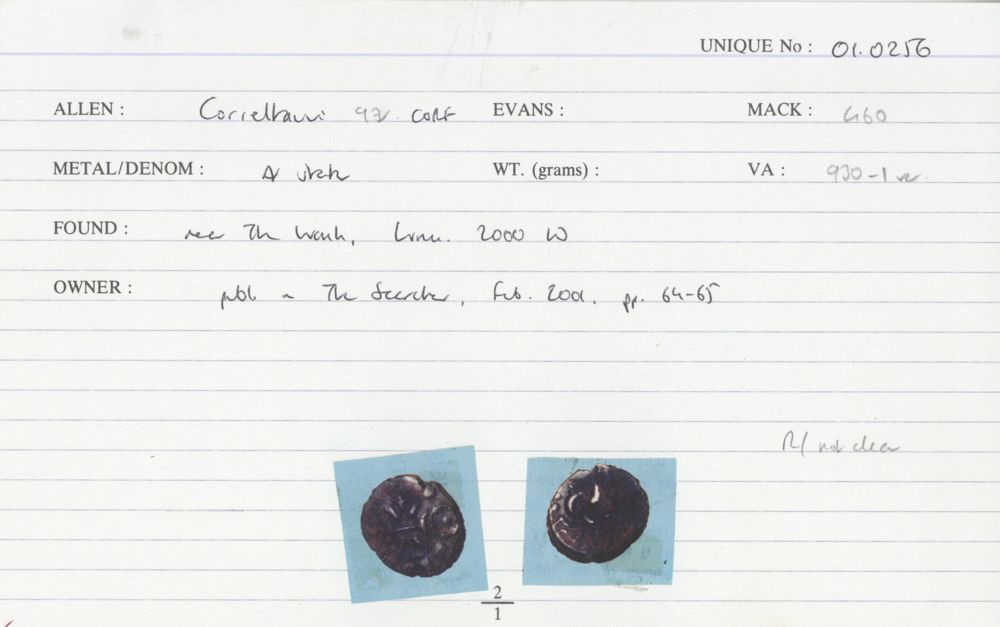 UNIQUE No : 01.0256
ALLEN : Corieltauvi CORF EVANS : MACK : 460
METAL/DENOM : AR unit WT. (grams) : VA : 930-1 var.
FOUND : near The Wash, Lincs. 2000
OWNER : publ in The Searcher, Feb. 2001, pp. 64-65
R/ not clear
2
1